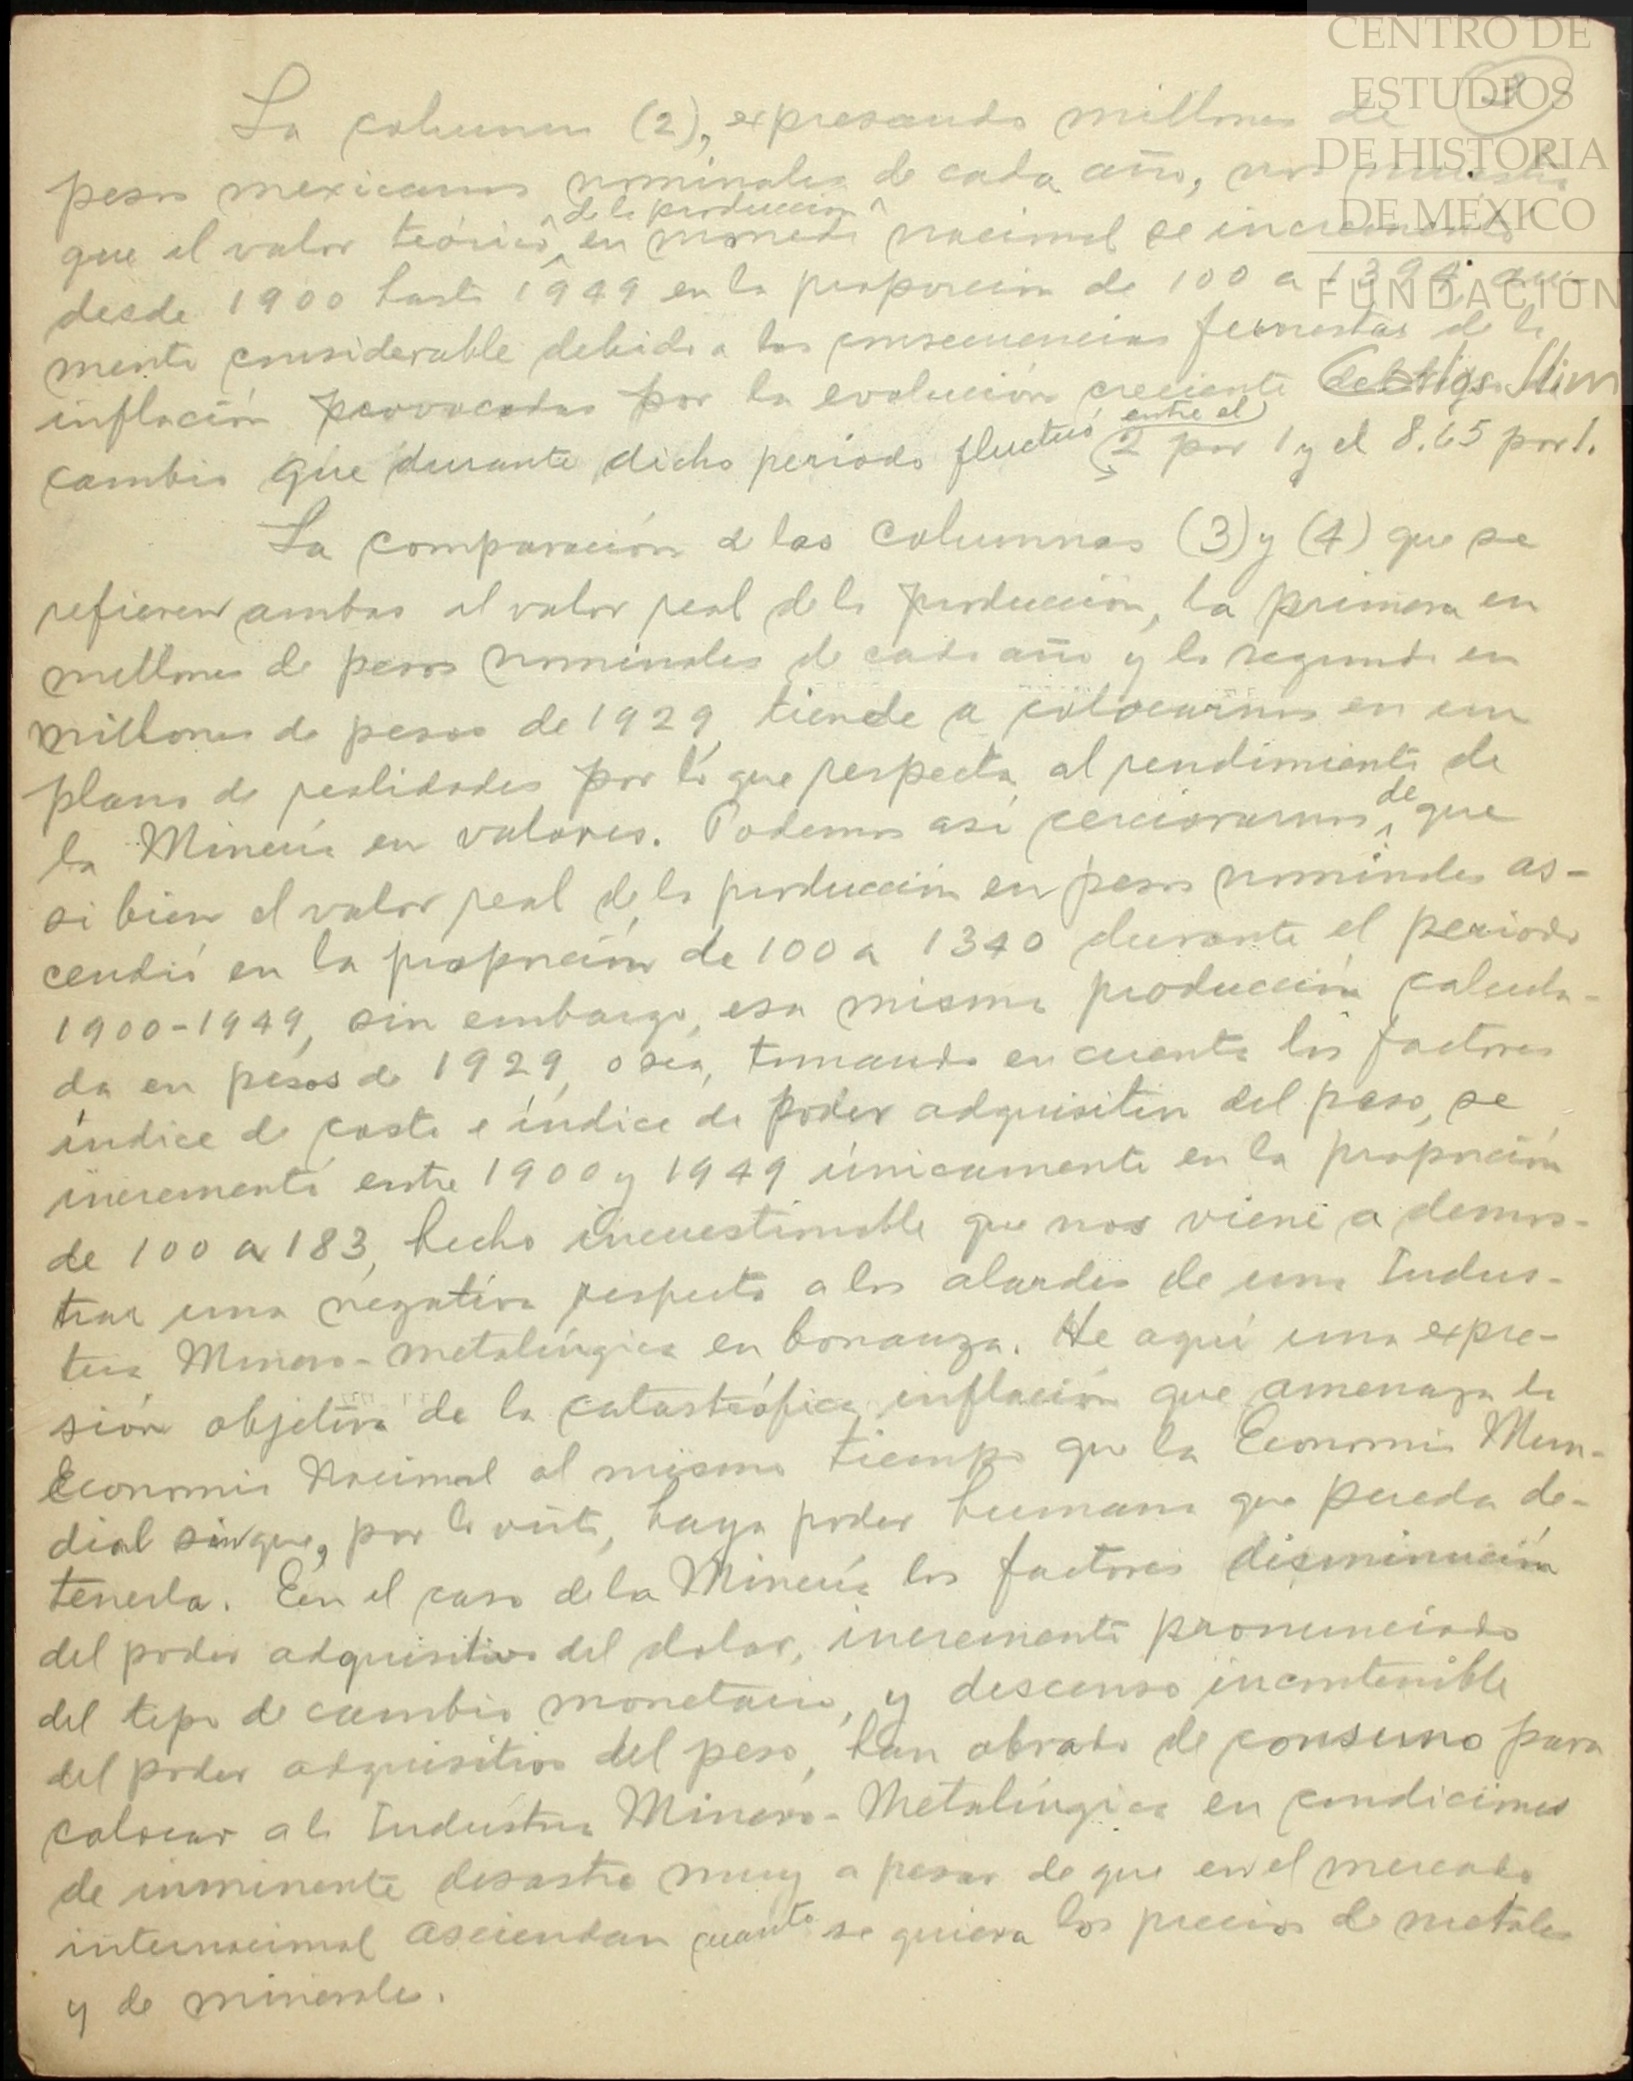 CENTRO DE
ESTUDIOS
DE HISTORIA
DE MÉXICO
FUNDACIÓN
La columna (2), expresando millones de
pesos mexicanos nominales de cada año, nos muestra
que el valor teórico de la producción en moneda nacional se incrementó
desde 1900 hasta 1949 en la proporción de 100 a 1394, au-
mento considerable debido a las consecuencias funestas de la
inflación provocadas por la evolución creciente del tipo
cambio que durante dicho periodo fluctuó entre el 2 por 1 y el 8.65 por 1.
La comparación de las columnas (3) y (4) que se
refieren ambas al valor real de la producción, la primera en
millones de pesos nominales de cada año y la segunda en
millones de pesos de 1929, tiende a colocarnos en un
plano de realidades por lo que respecta al rendimiento de
la Minería en valores. Podemos así cerciorarnos de que
si bien el valor real de la producción en pesos nominales as-
cendió en la proporción de 100 a 1340 durante el periodo
1900-1949, sin embargo, esa misma producción calcula-
da en pesos de 1929, o sea, tomando en cuenta los factores
índice de costo e índice de poder adquisitivo del peso, se
incrementó entre 1900 y 1949 únicamente en la proporción
de 100 a 183, hecho incuestionable que nos viene a demos-
trar una negativa respecto a los alardes de una Indus-
tria Minero-metalúrgica en bonanza. He aquí una expre-
sión objetiva de la catastrófica inflación que amenaza la
Economía Nacional al mismo tiempo que la Economía Mun-
dial sin que, por lo visto, haya poder humano que pueda de-
tenerla. En el caso de la Minería los factores disminución
del poder adquisitivo del dolar, incremento pronunciado
del tipo de cambio monetario, y descenso incontenible
del poder adquisitivo del peso, han obrado de consuno para
colocar a la Industria Minero-Metalúrgica en condiciones
de inminente desastre muy a pesar de que en el mercado
internacional asciendan cuanto se quiera los precios de metales
y de minerales.